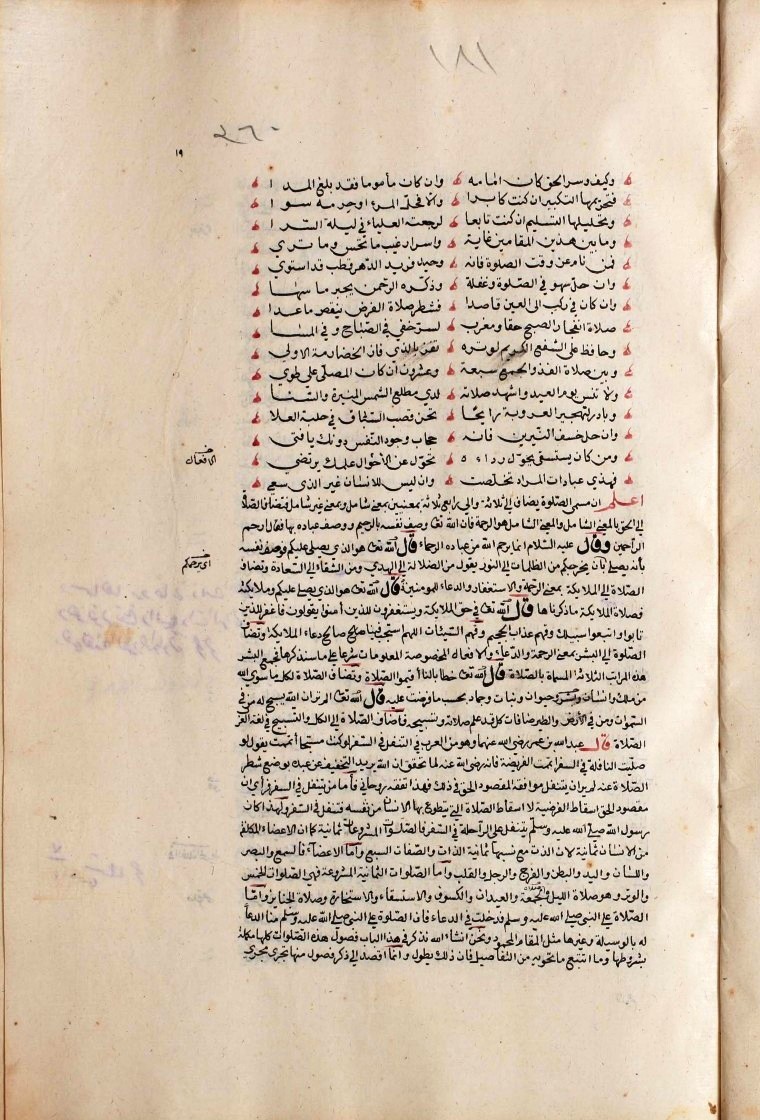 ١٨١
٢٦٠
١٩
وكيف وسر الحق كان امامه وان كان مأموما فقد بلغ المدا
فتحريمها التكبير ان كنت كابرا والا فحل المرء او حرمه سوا
وتحليلها التسليم ان كنت تابعا لرجعته العلياء في ليلة السرا
وما بين هذين المقامين غاية واسرار غيب ما تحس وما ترى
فمن نام عن وقت الصلوة فانه وحيد فريد الدهر قطب قد استوى
وان حل سهو في الصلوة وغفلة وذكره الرحمن يجبر ما سها
وان كان في ركب الى العين قاصدا فشطر صلاة الفرض ينقص ما عدا
صلاة انفجار الصبح حقا ومغرب لسر خفي في الصباح وفي المسا
وحافظ على الشفع الكريم لوتره تفز بالذي فاز الحضارمة الاولى
وبين صلاة الفذ والجمع سبعة وعشرون ان كان المصلى على طوى
ولا تنس يوم العيد واشهد صلاته لدى مطلع الشمس المنيرة والسنا
وبادر لتهجير العروبة رايحا تحز قصب السباق في حلبة العلا
وان حل خسف النيرين فانه حجاب وجود النفس دونك يا فتى
ومن كان يستسقي يحول رداءه تحول عن الأحوال علك ترتضى
فهذي عبادات المراد تخلصت وان ليس للانسان غير الذي سعى
اعلم ان مسمى الصلوة يضاف إلى ثلاثة والى رابع ثلاثة بمعنيين بمعنى شامل وبمعنى غير شامل فتضاف الصلاة
إلى الحق بالمعنى الشامل والمعنى الشامل هو الرحمة فان الله تعالى وصف نفسه بالرحيم ووصف عباده بها فقال ارحم
الراحمين وقال عليه السلام انما يرحم الله من عباده الرحماء قال الله تعالى هو الذي يصلي عليكم فوصف نفسه
بأنه يصلي بأن يخرجكم من الظلمات إلى النور يقول من الضلالة إلى الهدى ومن الشقاء إلى السعادة وتضاف
الصلاة إلى الملايكة بمعنى الرحمة والاستغفار والدعاء للمومنين قال الله تعالى هو الذي يصلي عليكم وملايكته
فصلاة الملايكة ما ذكرناها قال الله تعالى في حق الملايكة ويستغفرون للذين آمنوا يقولون فاغفر للذين
تابوا واتبعوا سبيلك وقهم عذاب الجحيم وقهم السيئات اللهم استجب فينا صالح دعاء الملايكة وتضاف
الصلوة إلى البشر بمعنى الرحمة والدعاء والافعال المخصوصة المعلومات شرعا على ما سنذكرها فجمع البشر
هذه المراتب الثلاثة المسماة بالصلاة قال الله تعالى خطابا لنا أقيموا الصلاة وتضاف الصلاة لكل ما سوى الله
من ملك وانسان وحيوان ونبات وجماد بحسب ما فرضت عليه قال الله تعالى الم تر ان الله يسبح له من في
السموات ومن في الأرض والطير صافات كل قد علم صلاته وتسبيحه فاضاف الصلاة إلى الكل والتسبيح في لغة العرب
الصلاة قال عبد الله بن عمر رضي الله عنهما وهو من العرب في التنفل في السفر لو كنت مسبحا أتممت يقول لو
صليت النافلة في السفر أتممت الفريضة فانه رضي الله عنه لما تحقق ان الله يريد التخفيف عن عبده بوضع شطر
الصلاة عنه لم ير ان يتنفل موافقة لمقصود الحق في ذلك فهذا تفقه روحاني فأما من يتنفل في السفر فرأى ان
مقصود الحق اسقاط الفرضية لا اسقاط الصلاة التي يتطوع بها الانسان من نفسه فتنفل في السفر ولهذا كان
رسول الله صلى الله عليه وسلم يتنفل على الراحلة في السفر فالصلوات المشروعات ثمانية كما ان الاعضاء المكلفة
من الانسان ثمانية لان الذات مع نسبها ثمانية الذات والصفات السبع وأما الاعضاء فالسمع والبصر
واللسان واليد والبطن والفرج والرجل والقلب وأما الصلوات الثمانية المشروعة فهي الصلوات الخمس
والوتر وهو صلاة الليل والجمعة والعيدان والكسوف والاستسقاء والاستخارة وصلاة الجنايز وأما
الصلاة على النبي صلى الله عليه وسلم فدخلت في الدعاء فان الصلوة على النبي صلى الله عليه وسلم منا الدعاء
له بالوسيلة وغيرها مثل المقام المحمود ونحن انشاء الله نذكر في هذا الباب فصول هذه الصلوات كلها مكملة
بشروطها وما اتتبع ما تحويه من التفاصيل فان ذلك يطول وانما اقصد إلى ذكر فصول منها تجري مجرى
الافعال
اي يرحمكم